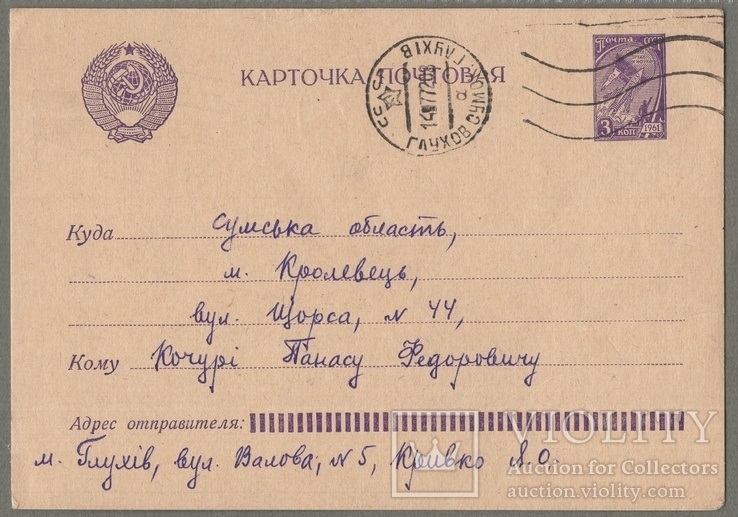 Почта СССР
3 коп 1961
КАРТОЧКА ПОЧТОВАЯ
ГЛУХІВ
СССР
ГЛУХОВ
Куда Сумська область,
м. Кролевець,
вул. Щорса, N 44,
Кому Кочурі Панасу Федоровичу
Адрес отправителя:
м. Глухів, вул. Валова, N 5, Кривко Я.О.
VIOLITY
Auction for Collectors
auction.violity.com